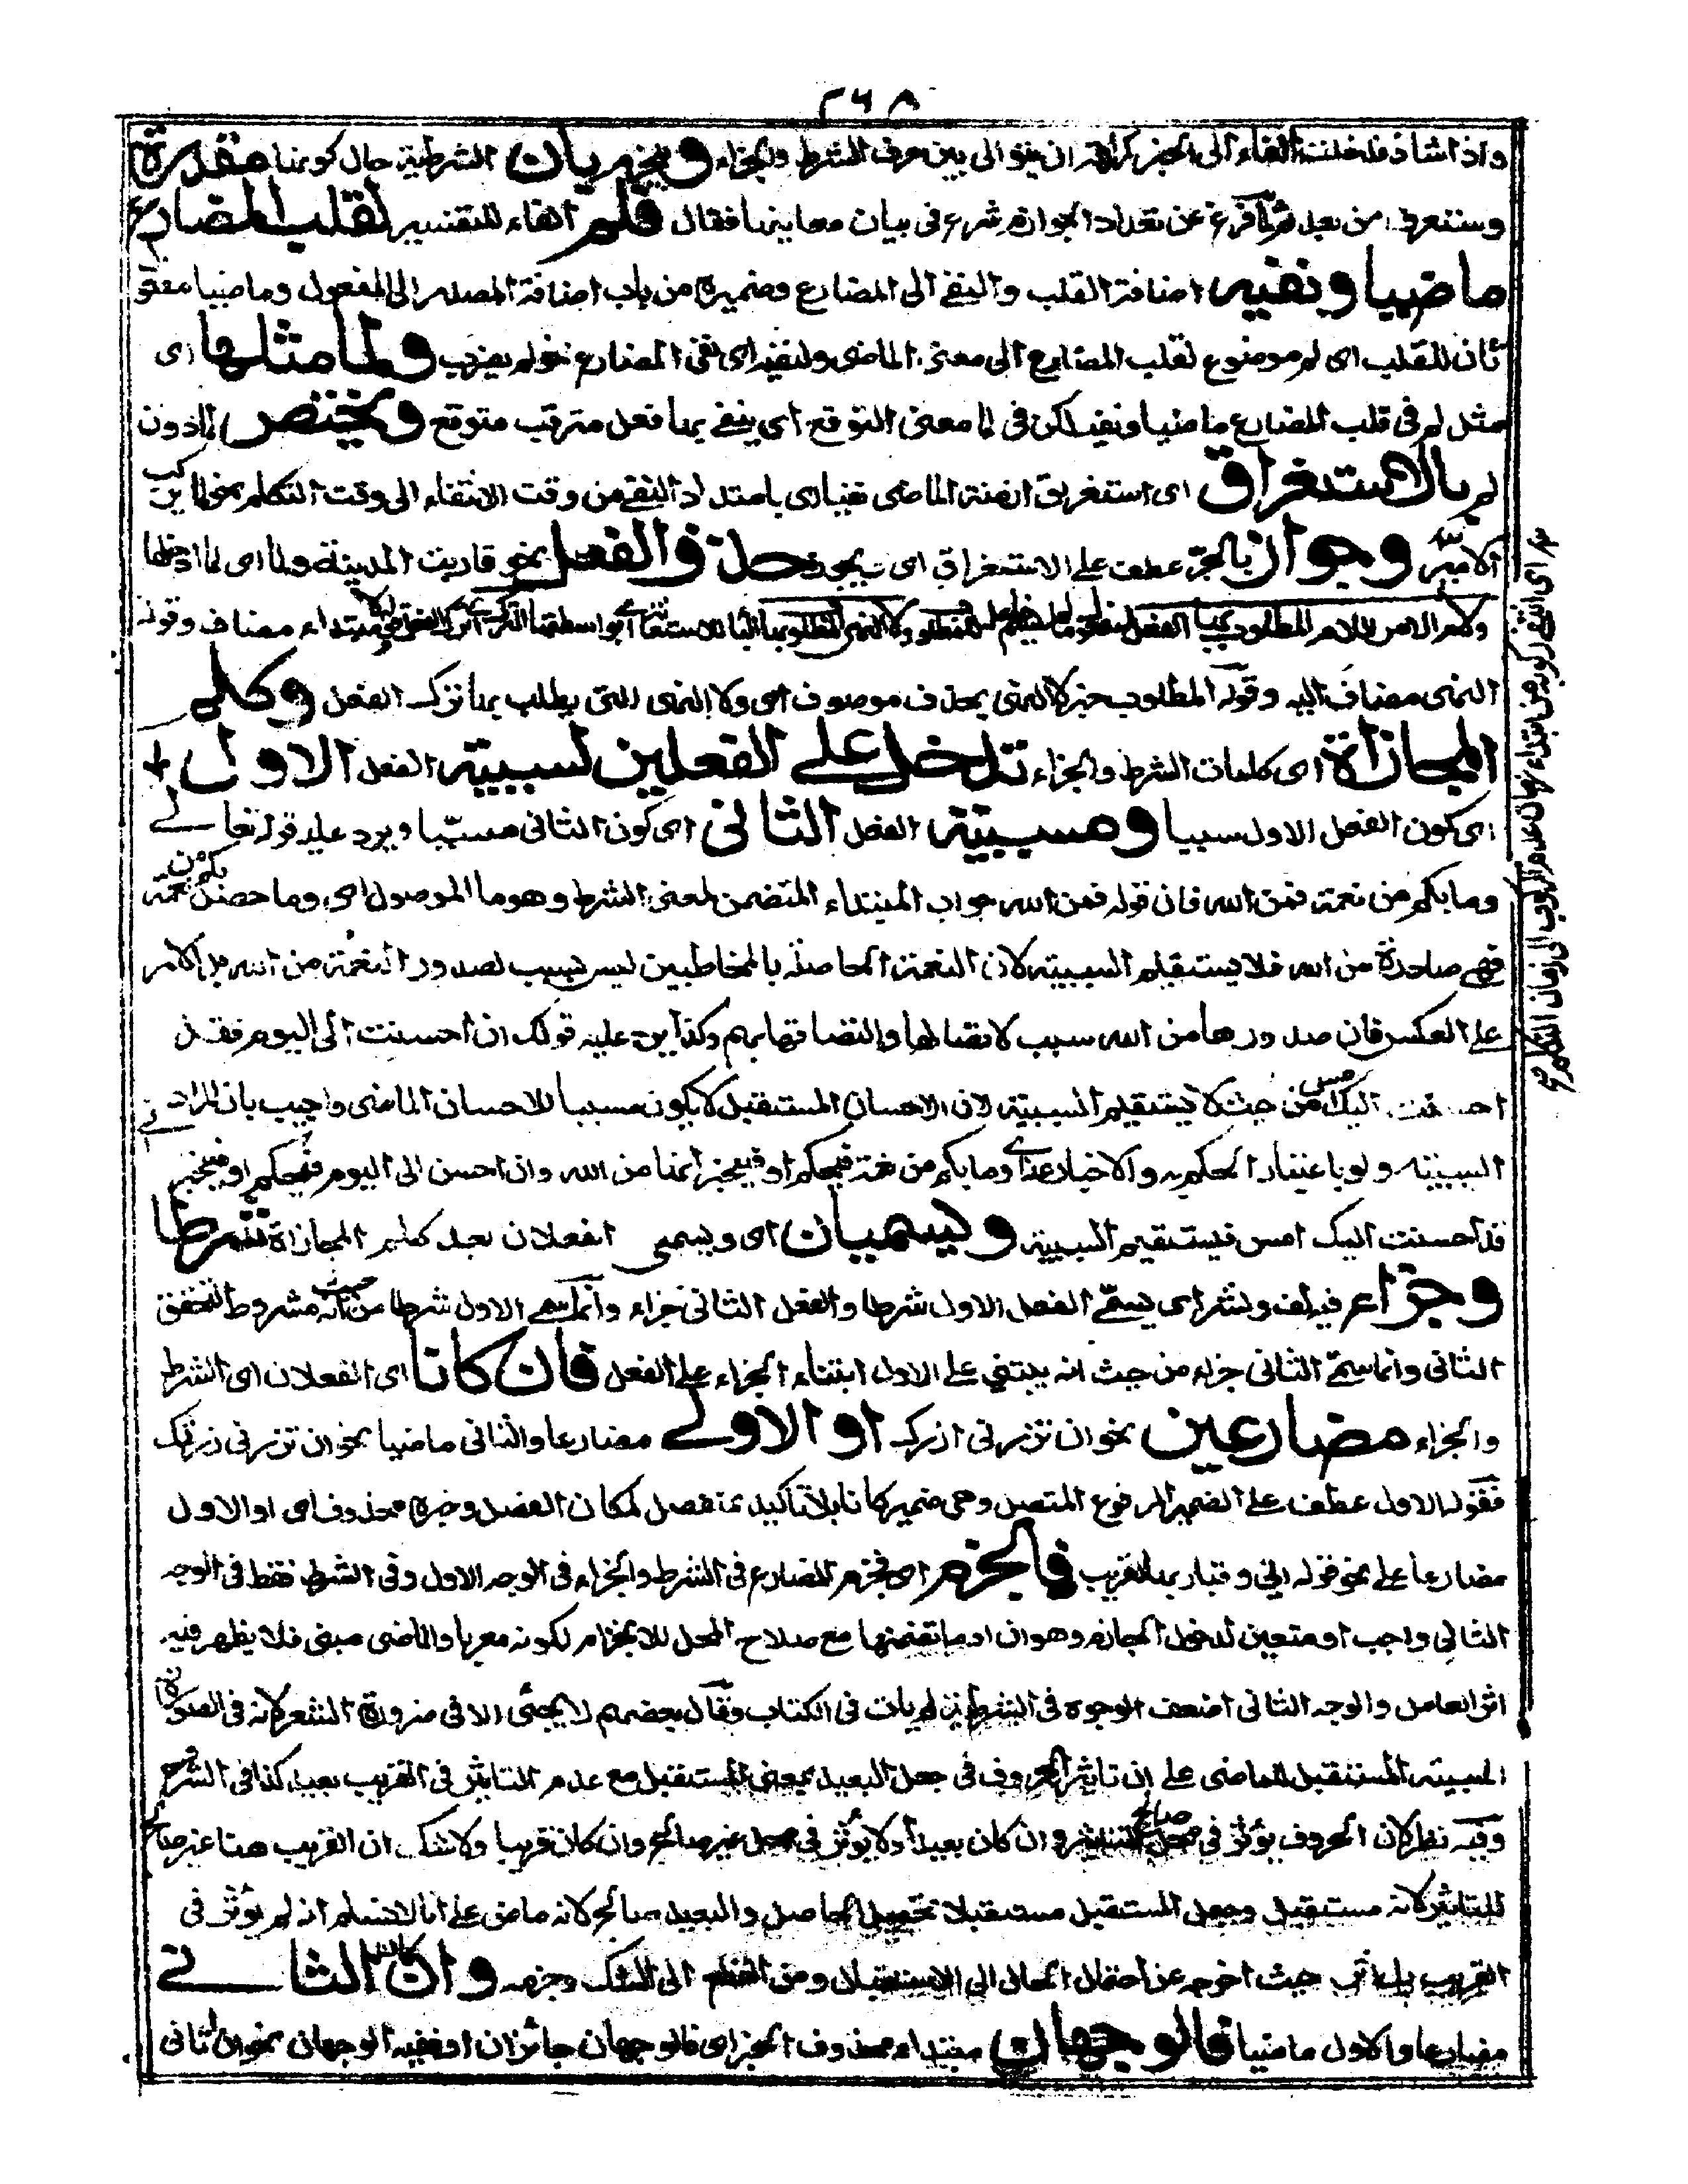 ٢٦٨
واذا شاذ فدخلت الفاء الى الجزء كراهة ان يتوالى بين حرف الشرط والجزاء وينجزم بان الشرطية حال كونها مقدرة
وستعرفه من بعد ثم لما فرغ عن تعداد الجوازم شرع في بيان معانيها فقال فلم الفاء للتفسير لقلب المضارع
ماضيا ونفيه اضافة القلب والنفي الى المضارع وضميره من باب اضافة المصدر الى المفعول وماضيا مفعول
ثان للقلب اى لم موضوع لقلب المضارع الى معنى الماضى ولنفيه اى نفى المضارع نحو لم يضرب ولما مثلها اى
مثل لم في قلب المضارع ماضيا ونفيه لكن في لما معنى التوقع اى ينفي بها فعل مترقب متوقع ويختص لما دون
لم بالاستغراق اى استغراق ازمنة الماضى بامتداد النفي من وقت الانتفاء الى وقت التكلم نحو لما يركب
الامير وجواز بالجر عطف على الاستغراق اى يجوز حذف الفعل نحو قاربت المدينة ولما اى لما ادخلها
ولام الامر اللام المطلوب بها الفعل ولا النهى المطلوب بها مبتداء مضاف وقوله
النهى مضاف اليه وقوله المطلوب خبر لا النهى بحذف موصوف اى ولا النهى التى يطلب بها ترك الفعل وكلم
المجازاة اى كلمات الشرط والجزاء تدخل على الفعلين لسببية الفعل الاول
اى كون الفعل الاول سببا ومسببية الفعل الثانى اى كون الثانى مسببا ويرد عليه قوله تعالى
وما بكم من نعمة فمن الله فان قوله فمن الله جواب المبتداء المتضمن لمعنى الشرط وهو ما الموصول اى وما حصل بكم من نعمة
فهى صادرة من الله فلا يستقيم السببية لان النعمة الحاصلة بالمخاطبين ليس بسبب لصدور النعمة من الله بل الامر
على العكس فان صدورها من الله سبب لاتصالها والتصاقها بهم وكذا يرد عليه قولك ان احسنت الى اليوم فقد
احسنت اليك امس من حيث لا يستقيم السببية لان الاحسان المستقبل لا يكون سببا للاحسان الماضى واجيب بان المراد
السببية ولو باعتبار الحكم به والاخبار عنه اى وما بكم من نعمة فيحكم او فيخبر انها من الله وان احسن الى اليوم فيحكم او فيخبر
قد احسنت اليك امس فيستقيم السببية ويسميان اى ويسمى الفعلان بعد كلم المجازاة شرطا
وجزاء فيه لف ونشر اى يسمى الفعل الاول شرطا والفعل الثانى جزاء وانما سمى الاول شرطا من حيث انه مشروط التحقق
الثانى وانما سمى الثانى جزاء من حيث انه يبتنى على الاول ابتناء الجزاء على الفعل فان كانا اى الفعلان اى الشرط
والجزاء مضارعين نحو ان تزرنى ازرك او الاول مضارعا والثانى ماضيا نحو ان تزرنى زرتك
فقوله الاول عطف على الضمير المرفوع المتصل وهى ضمير كانا بلا تاكيد بمنفصل لمكان الفصل وخبره محذوف اى او الاول
مضارعا على نحو قوله انى وقيار بها لغريب فالجزم اى فجزم المضارع في الشرط والجزاء في الوجه الاول وفى الشرط فقط في الوجه
الثانى واجب او متعين لدخول الجازم وهو ان او ما تضمنها مع صلاح المحل للانجزام لكونه معربا والماضى مبنى فلا يظهر فيه
اثر العامل والوجه الثانى اضعف الوجوه في الشرطية لم يات في الكتاب وقال بعضهم لا يجئ الا في ضرورة الشعر لانه في الصورة
المسببية المستقبل للماضى على ان تاثير الحروف في جعل البعيد بمعنى المستقبل مع عدم التاثير في القريب بعيد كذا في الشرح
وفيه نظر لان الحروف يؤثر في محل صالح للتاثير وان كان بعيدا ولا يؤثر في محل غير صالح وان كان قريبا ولا شك ان القريب هنا غير صالح
للتاثير لانه مستقبل وجعل المستقبل مستقبلا تحصيل الحاصل والبعيد صالح لانه ماض على انا لا نسلم انه لم يؤثر في
القريب بل اثر حيث اخرجه عن احتمال الحال الى الاستقبال ومن القطع الى الشك وجزمه وان كان الثانى
مضارعا والاول ماضيا فالوجهان مبتداء محذوف الخبر اى فالوجهان جائزان او ففيه الوجهان نحو ان اتانى